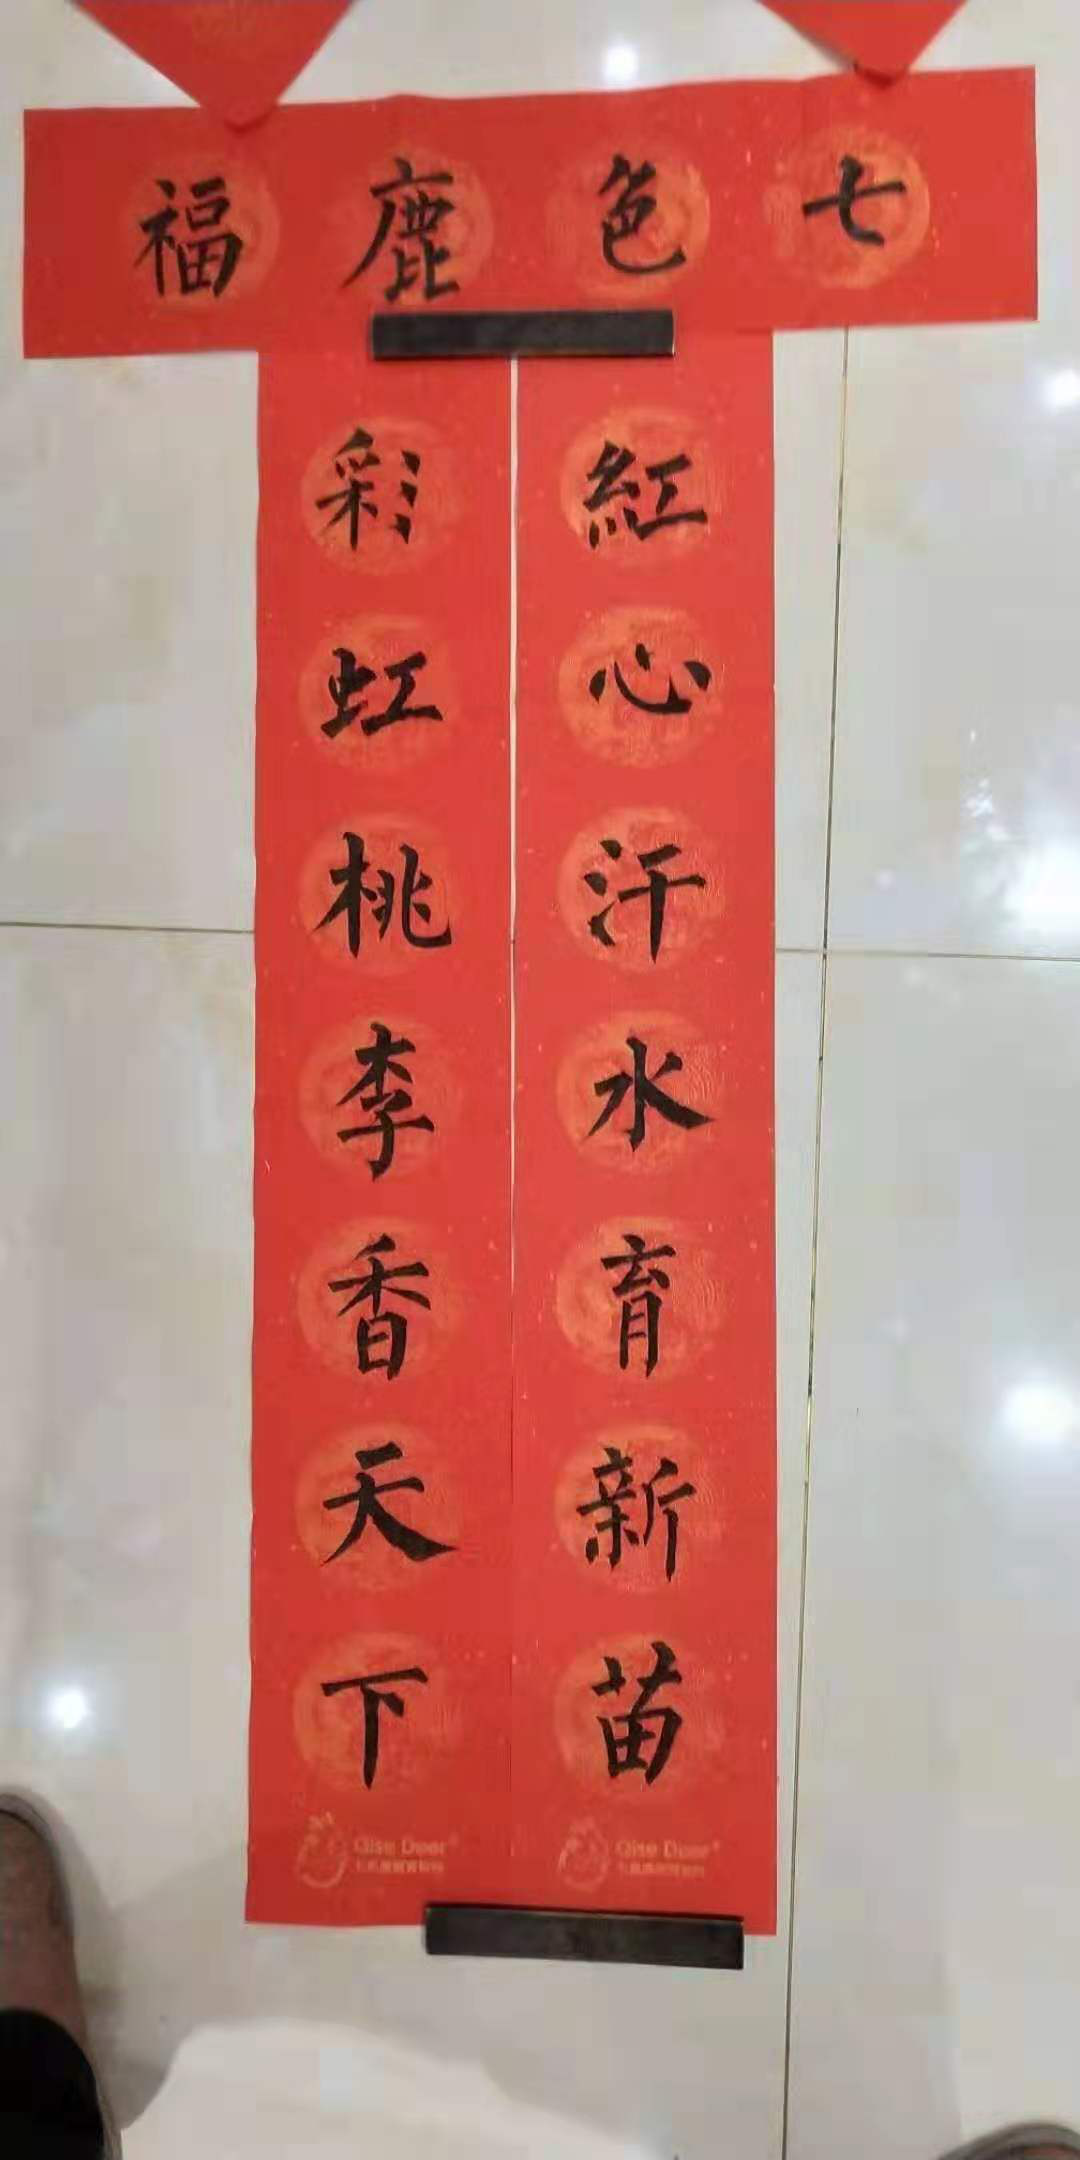 七色鹿福
紅心汗水育新苗
彩虹桃李香天下
Qise Deer
Qise Deer